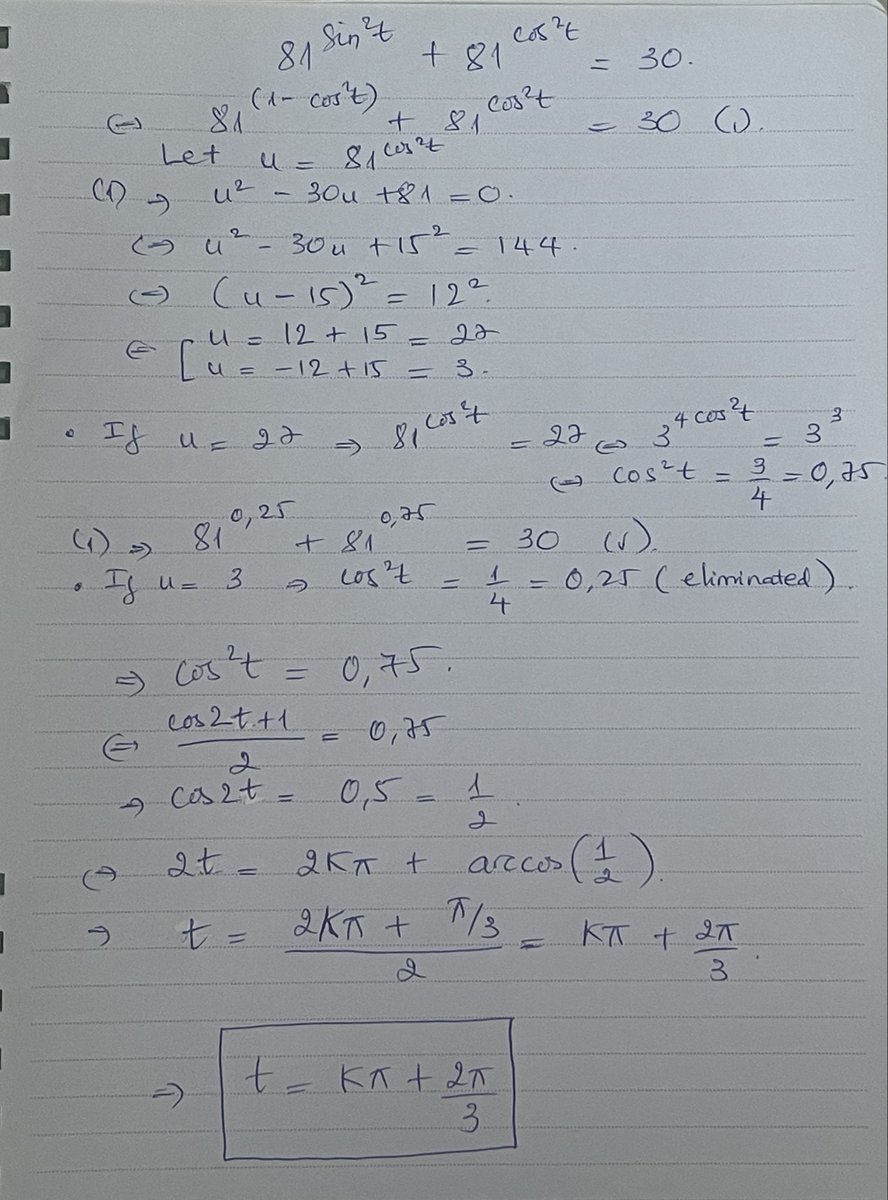 81^(sin²t) + 81^(cos²t) = 30.
⇔ 81^((1 - cos²t)) + 81^(cos²t) = 30 (1).
Let u = 81^(cos²t)
(1) ⇒ u² - 30u + 81 = 0.
⇔ u² - 30u + 15² = 144.
⇔ (u - 15)² = 12².
⇔ [ u = 12 + 15 = 27
u = -12 + 15 = 3.
• If u = 27 ⇒ 81^(cos²t) = 27 ⇔ 3^(4cos²t) = 3³
⇔ cos²t = 3/4 = 0,75
(1) ⇒ 81^(0,25) + 81^(0,75) = 30 (√).
• If u = 3 ⇒ cos²t = 1/4 = 0,25 (eliminated).
⇒ cos²t = 0,75.
⇔ (cos2t+1)/2 = 0,75
⇒ cos2t = 0,5 = 1/2.
⇔ 2t = 2Kπ + arccos(1/2).
⇒ t = (2Kπ + π/3)/2 = Kπ + 2π/3.
⇒ t = Kπ + 2π/3